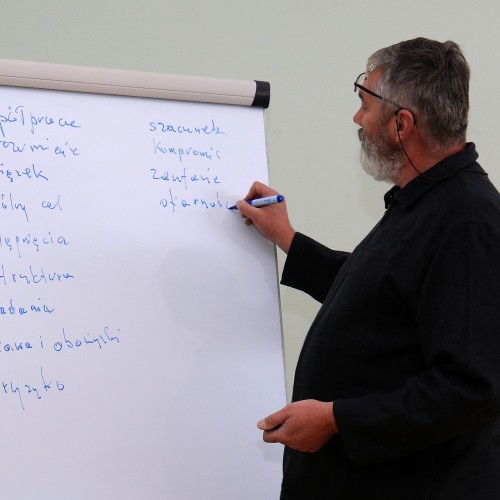 półpracę
rozumienie
iązek
ólny cel
ięgnięcia
truktura
adania
rawa i obowiązki
ryzyko
szacunek
kompromis
zaufanie
ofiarność